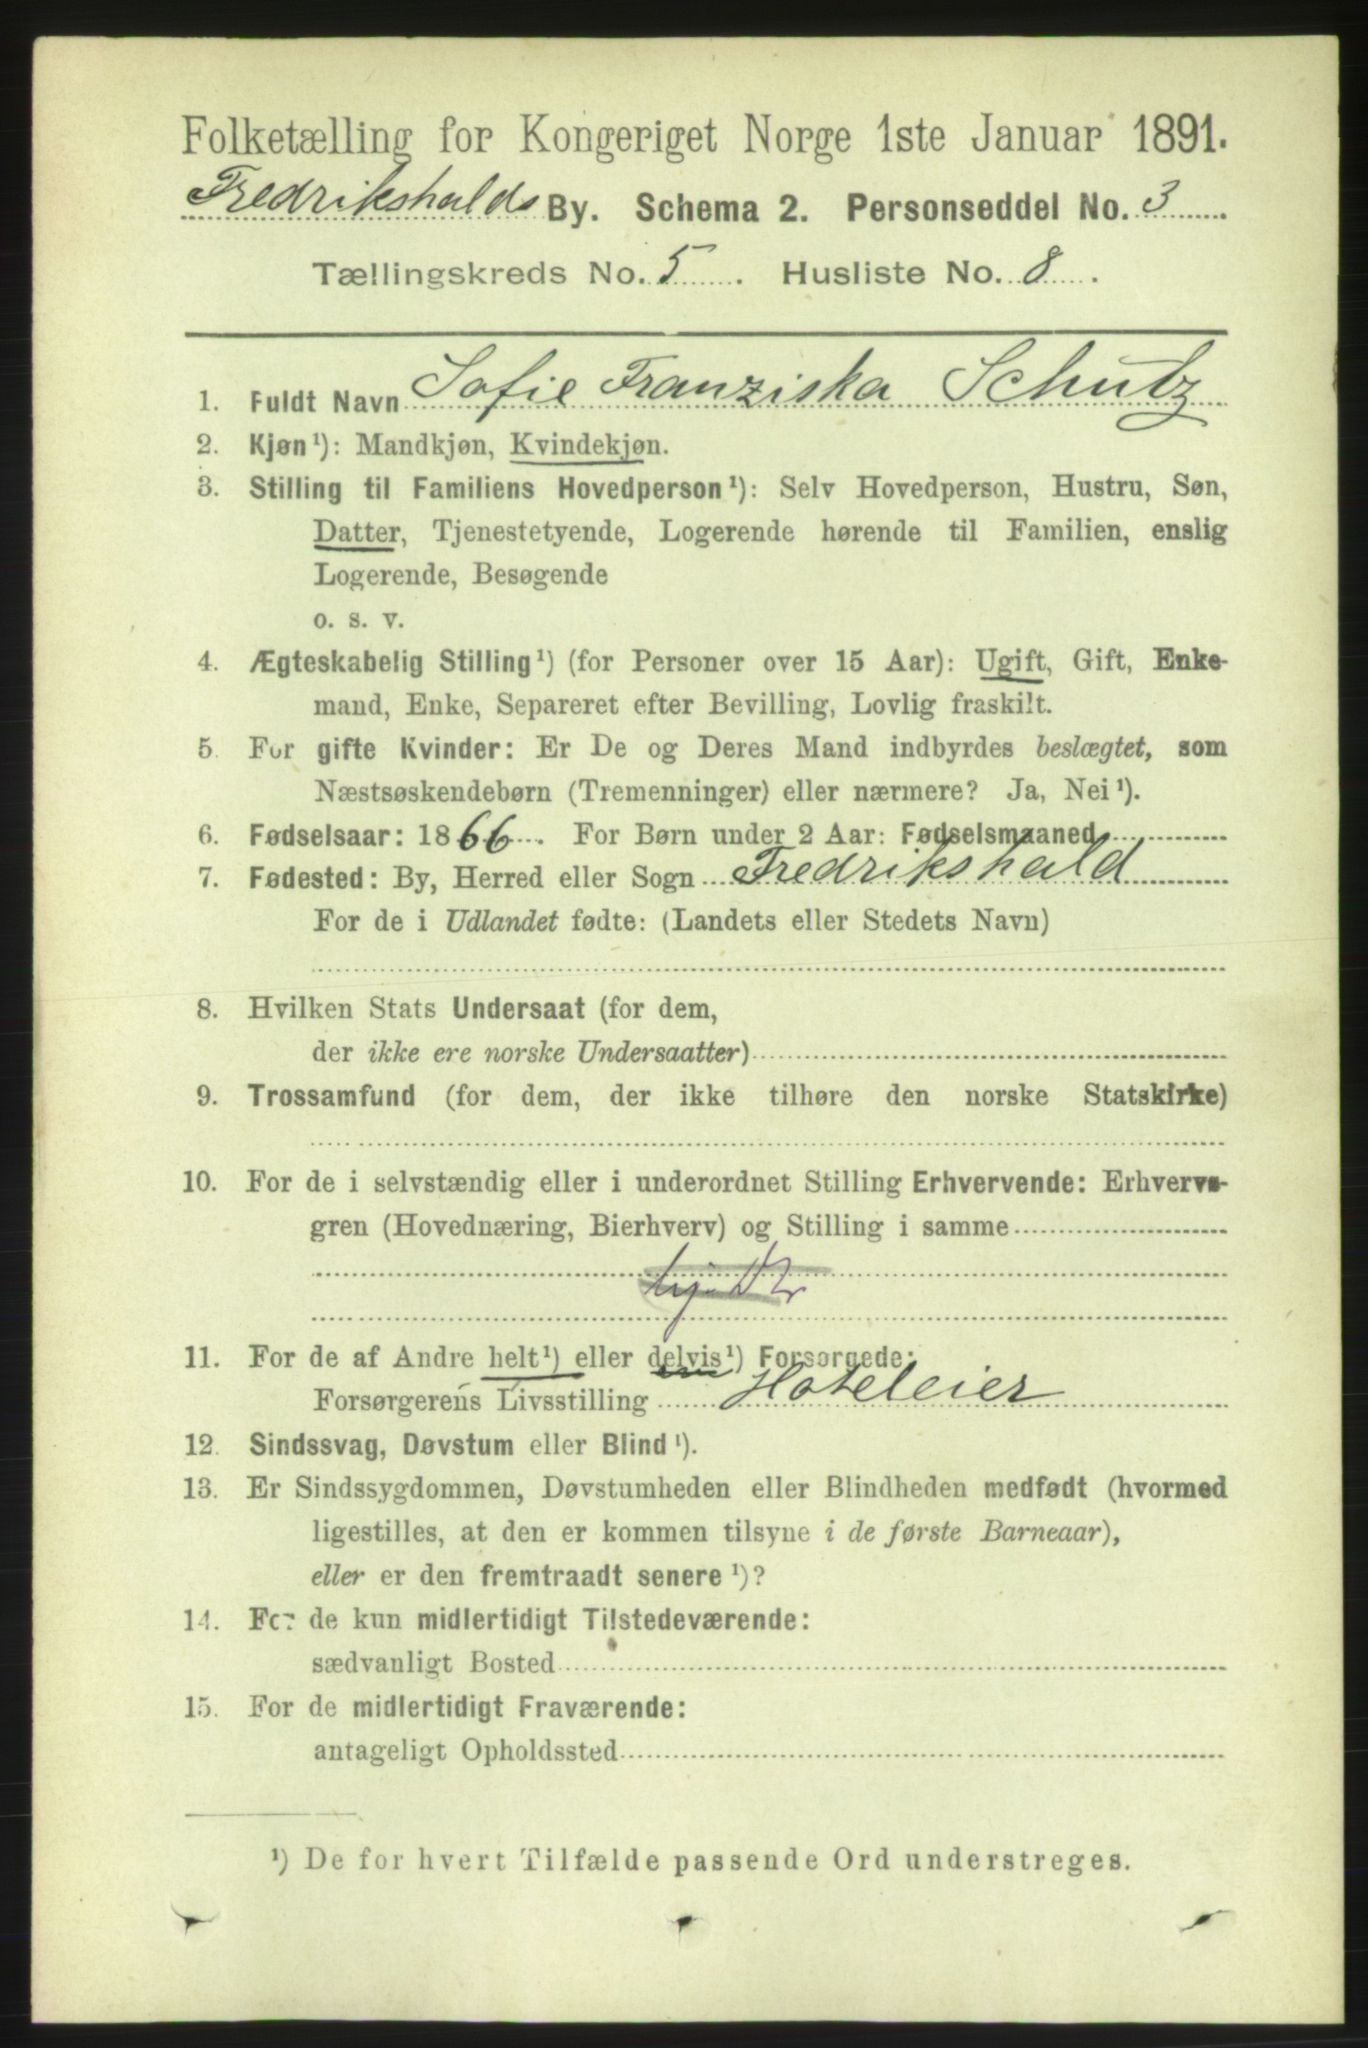 Folketælling for Kongeriget Norge 1ste Januar 1891.
Fredrikshalds By. Schema 2. Personseddel No. 3
Tællingskreds No. 5. Husliste No. 8.
1. Fuldt Navn Sofie Franziska Schutz
2. Kjøn¹): Mandkjøn, Kvindekjøn.
3. Stilling til Familiens Hovedperson¹): Selv Hovedperson, Hustru, Søn,
Datter, Tjenestetyende, Logerende hørende til Familien, enslig
Logerende, Besøgende
o. s. v.
4. Ægteskabelig Stilling¹) (for Personer over 15 Aar): Ugift, Gift, Enke-
mand, Enke, Separeret efter Bevilling, Lovlig fraskilt.
5. For gifte Kvinder: Er De og Deres Mand indbyrdes beslægtet, som
Næstsøskendebørn (Tremenninger) eller nærmere? Ja, Nei¹).
6. Fødselsaar: 1866. For Børn under 2 Aar: Fødselsmaaned
7. Fødested: By, Herred eller Sogn Fredrikshald
For de i Udlandet fødte: (Landets eller Stedets Navn)
8. Hvilken Stats Undersaat (for dem,
der ikke ere norske Undersaatter)
9. Trossamfund (for dem, der ikke tilhøre den norske Statskirke)
10. For de i selvstændig eller i underordnet Stilling Erhvervende: Erhvervs-
gren (Hovednæring, Bierhverv) og Stilling i samme
11. For de af Andre helt¹) eller delvis¹) Forsørgede:
Forsørgerens Livsstilling Hoteleier
12. Sindssvag, Døvstum eller Blind¹).
13. Er Sindssygdommen, Døvstumheden eller Blindheden medfødt (hvormed
ligestilles, at den er kommen tilsyne i de første Barneaar),
eller er den fremtraadt senere¹)?
14. For de kun midlertidigt Tilstedeværende:
sædvanligt Bosted
15. For de midlertidigt Fraværende:
antageligt Opholdssted
¹) De for hvert Tilfælde passende Ord understreges.